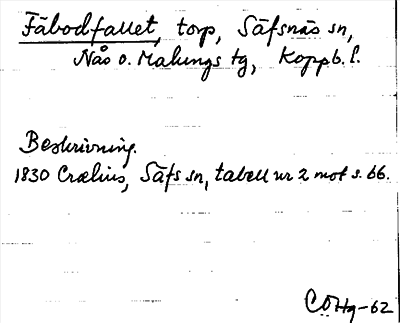 Fäbodfallet, torp, Säfsnäs sn,
Nås o. Malungs tg, Koppb. l.
Beskrivning.
1830 Crælius, Säfs sn, tabell nr 2 mot s. 66.
CÖHg-62